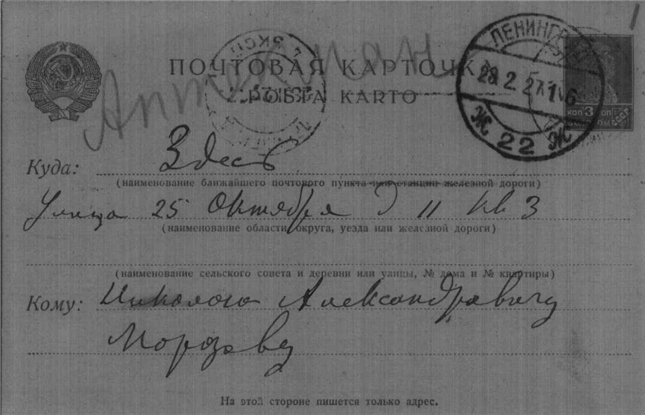 1
ПОЧТОВАЯ КАРТОЧКА
POŜTA KARTO
ЛЕНИНГРАД
28.2.27
Ж 22 Ж
КОП 3 КОП
Куда: Здесь
(наименование ближайшего почтового пункта или станции железной дороги)
Улица 25 Октября д 11 кв 3
(наименование области, округа, уезда или железной дороги)
(наименование сельского совета и деревни или улицы, № дома и № квартиры)
Кому: Николаю Александровичу
Морозову
На этой стороне пишется только адрес.